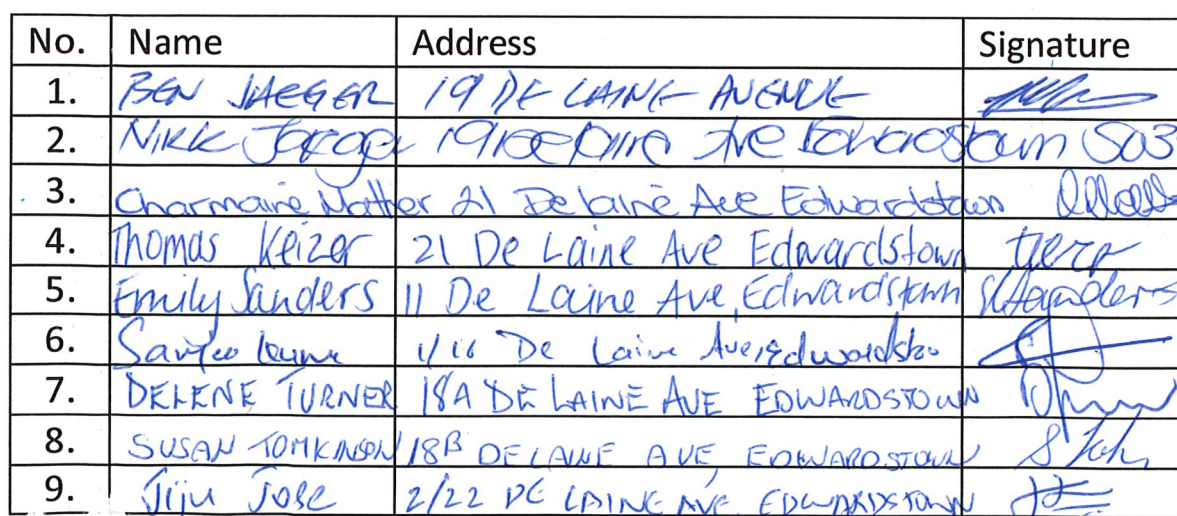 No. Name Address Signature
1. BEN JAEGER 19 DE LAINE AVENUE
2. Nikk Jaeger 19 De Laine Ave Edwardstown SA
3. Charmaine Mather 21 De Laine Ave Edwardstown
4. Thomas Keizer 21 De Laine Ave Edwardstown
5. Emily Sanders 11 De Laine Ave, Edwardstown
6. De Laine Ave,
7. DELENE TURNER 18A DE LAINE AVE EDWARDSTOWN
8. SUSAN TOMKINSON 18B DE LAINE AVE, EDWARDSTOWN
9. Jiju Jose 2/22 DE LAINE AVE, EDWARDSTOWN